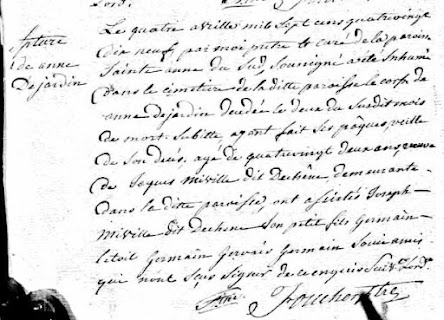 Lord.
Le quatre avrille mil sept cens quatrevingt
sepulture dix neuf par moi pretre et curé de la paroisse
de anne Sainte anne du Sud, Sousigné a été Inhumé
Dejardin dans le cimetiere de la ditte paroisse le corps de
anne dejardin décédée le deux du Susdit mois
de mort Subitte ayant fait Ses pâques, veille
de Son decès, agé de quatrevingt deux ans veuve
de Jaques Miville dit Dechêne demeurante
dans la ditte paroisse, ont assistés Joseph
Miville dit dechene Son petit fils Germain
Germain Gervais Germain amis
qui nont Sçus Signer de ce enquis Suiv. Lord.